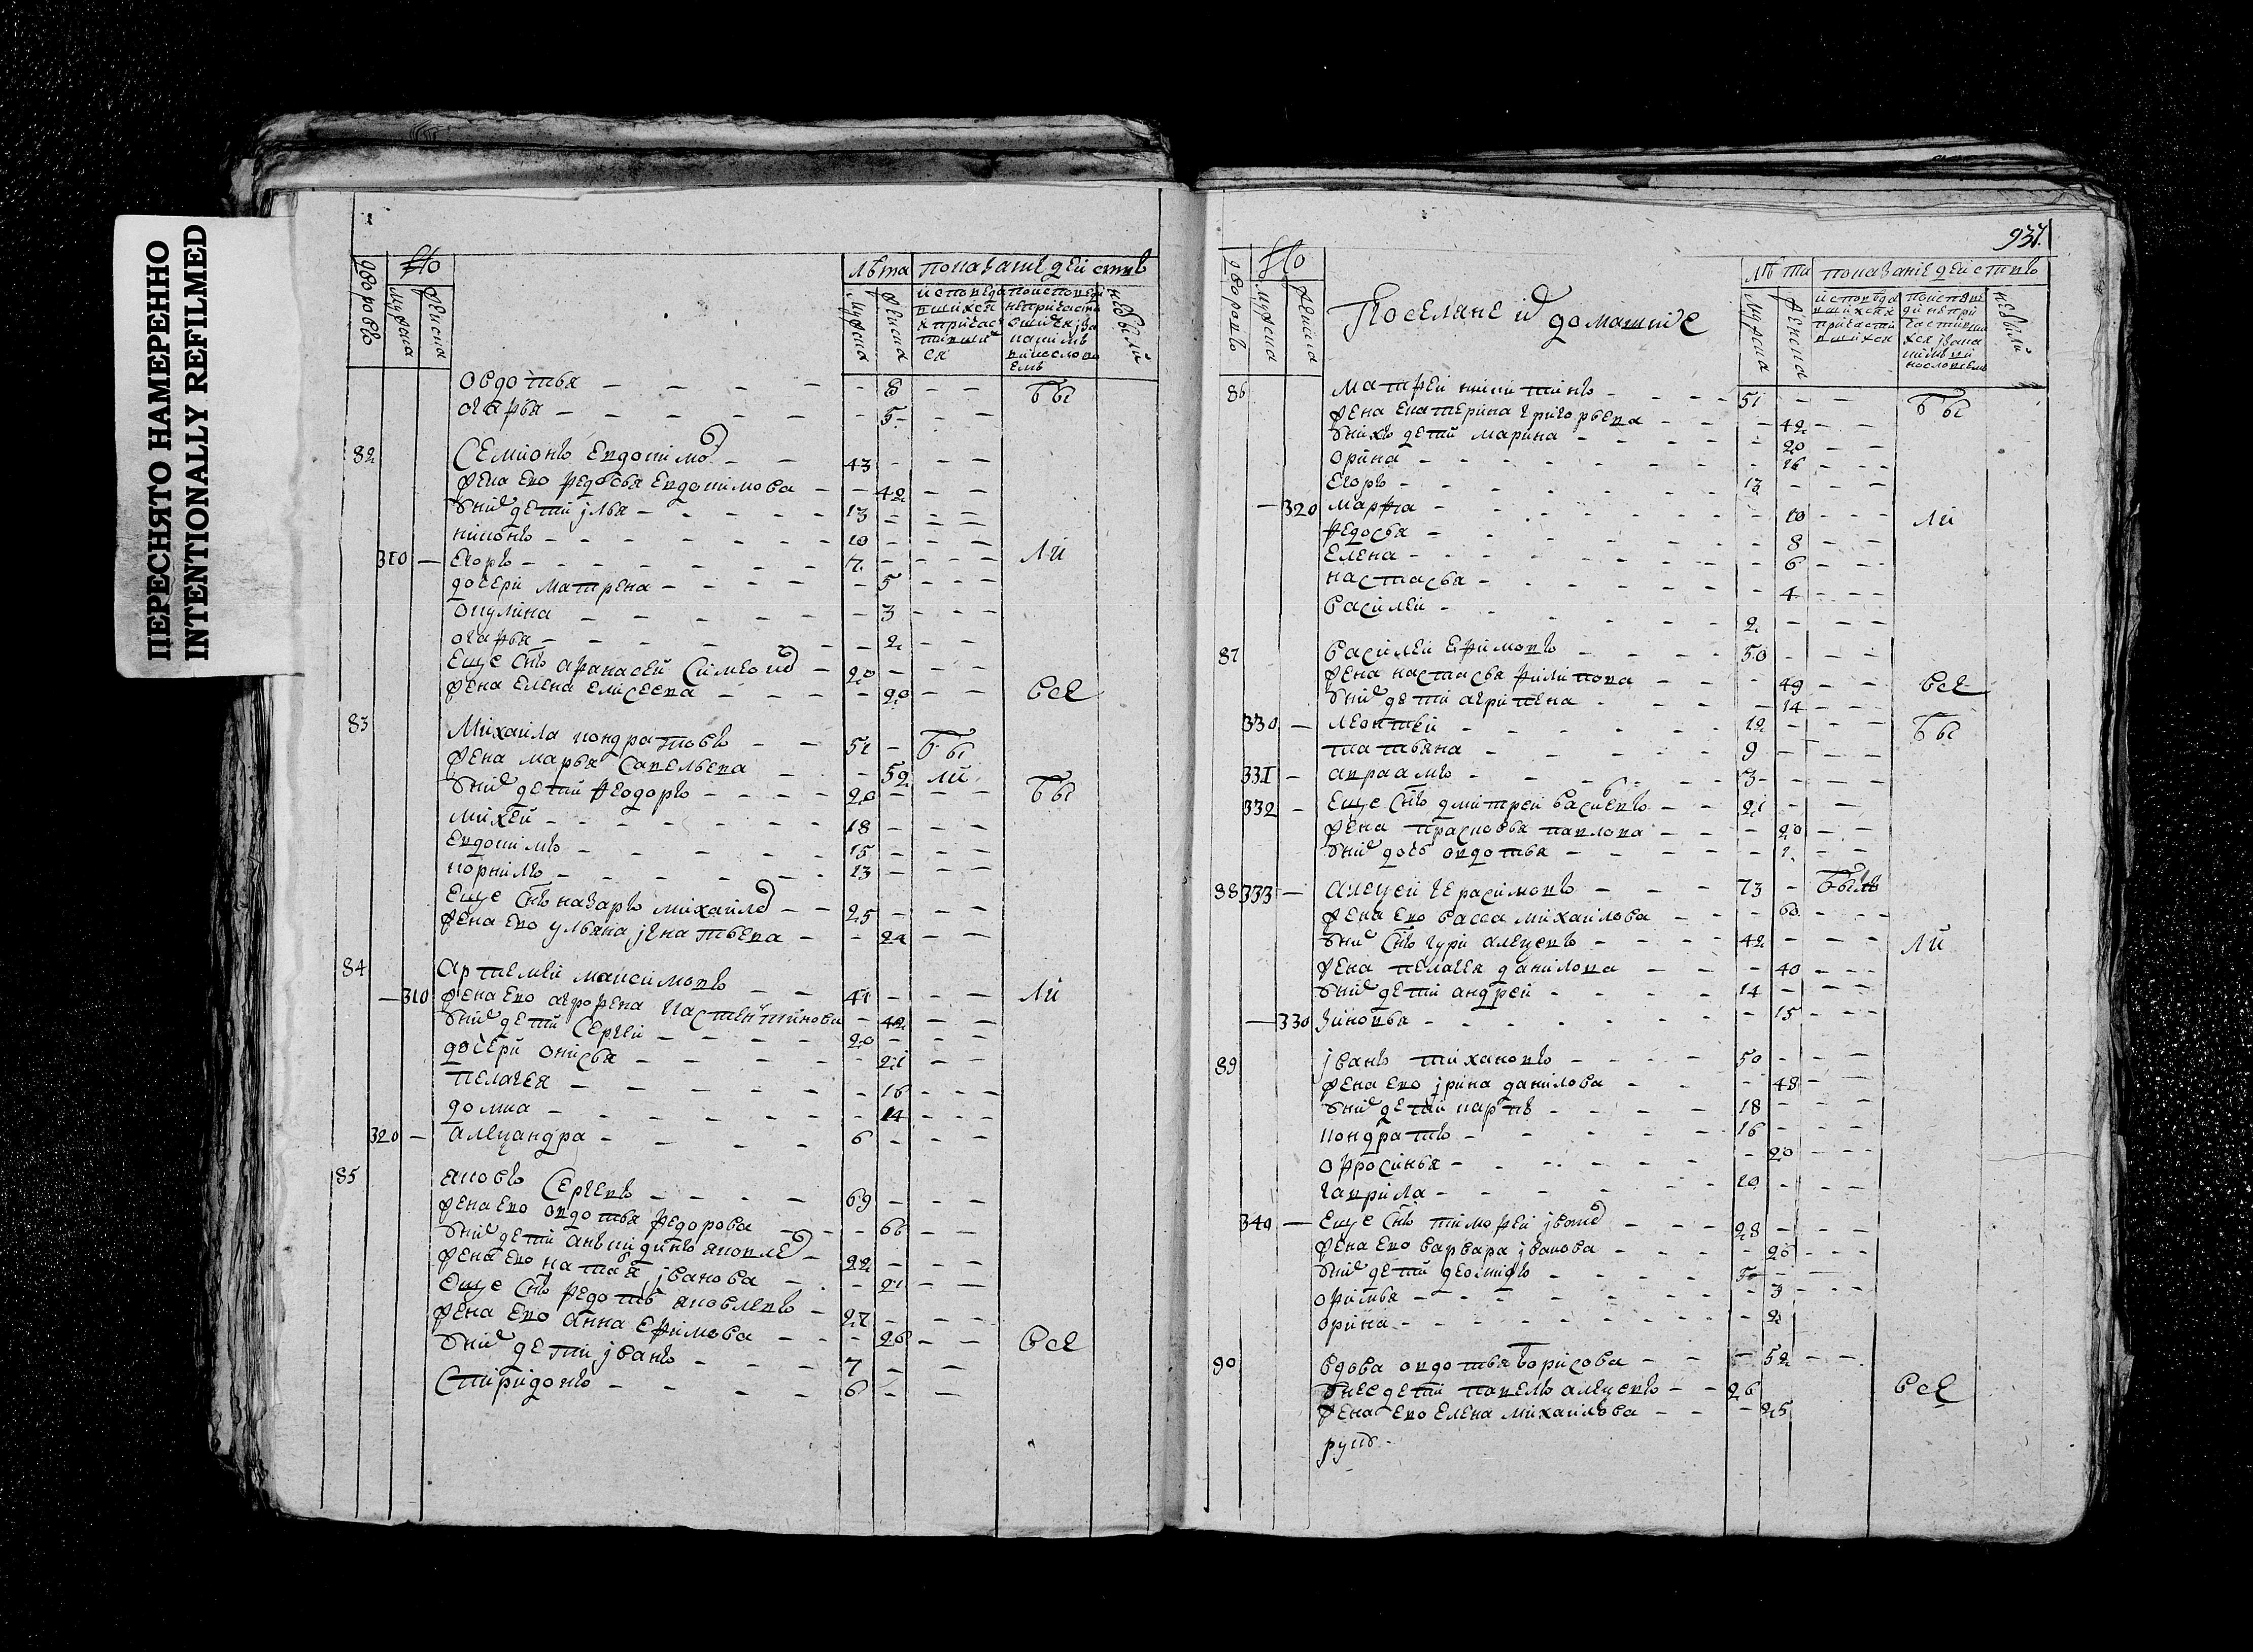 ПЕРЕСНЯТО НАМЕРЕННО
INTENTIONALLY REFILMED
No
лѣта показание действъ
дворовъ
мужска
женска
мужска
женска
небыли
овдотья - - - - - 8 - - бы
огафья - - - - - 5 - -
82 Семионъ Евдокимо 43 - - -
жена ево федосья Евдокимова - - 42 - -
у них дети илья - - - - 13 - - -
никонъ - - - - 10 - - -
310 — Егоръ - - - - 7 - - - ли
дочери матрена - - - - 5 - - -
окулина - - - - 3 - - -
огафья - - - - 2 - -
Еще снъ афанасеи Симеоно 20 - - -
жена елена елисеева - - - 20 - - все
83 Михаила кондратовъ - - 51 - бы
жена марья Савельева - - 52 ли
у них дети феодоръ - - - 20 - - - бы
михеи - - - - 18 - - -
Евдокимъ - - - - 15 - - -
корнилъ - - - - 13 - - -
Еще снъ назаръ михаило - - 25 - - -
жена ево ульяна игнатьева - - 24 - -
84 артемеи максимовъ - - 41 - - - ли
— 310 жена ево агрофена костентинова - 42 - -
у них дети Сергеи - - - 20 - - -
дочери онисья - - - - 21 - -
пелагея - - - - 16 - - -
домна - - - - 14 - - -
320 — александра - - - - 6 - - -
85 яковъ Сергеевъ - - - 69 - - -
жена ево овдотья федорова - - - 66 - -
у них дети аньикидинъ яковле 22 - - -
жена ево наталья иванова - - 21 - -
Еще снъ федотъ яковлевъ - 27 - - -
жена ево анна ефимова - - - 26 - - все
у них дети иванъ - - - 7 - -
Спиридонъ - - - - 6 - -
937
No
Поселяне и домашние
лѣта показание действъ
дворовъ
мужска
женска
мужска
женска
небыли
86 матфеи никитинъ - - - 51 - - - бы
жена екатерина григорьева - - - 42 - -
у нихъ дети марина - - - - 20 - -
орина - - - - 16 - - -
Егоръ - - - - 13 - - -
— 320 марфа - - - - 10 - - ли
федосья - - - - 8 - - -
Елена - - - - 6 - - -
настасья - - - - 4 - - -
василеи - - - - 2 - - -
87 василеи ефимовъ - - - 50 - - -
жена настасья филипова - - - 49 - - все
у них дети агрипена - - - 14 - - -
330 — леонтеи - - - - 12 - - - бы
татьяна - - - - 9 - - -
331 — авраамъ - - - - 3 - - -
332 - Еще снъ дмитреи васильевъ - - 21 - - -
жена прасковья павлова - - - 20 - -
у них дочь овдотья - - - 1 - -
88 333 — алексеи герасимовъ - - - 73 - былъ
жена ево васса михаилова - - - 60 - - -
у них снъ гури алексеевъ - - - 42 - - - ли
жена пелагея данилова - - - 40 - - -
у них дети андреи - - - - 14 - - -
— 330 зиновья - - - - 15 - - -
89 иванъ тихановъ - - - - 50 - - -
жена ево ирина данилова - - - 48 - - -
у них дети карпъ - - - - 18 - - -
кондратъ - - - - 16 - - -
офросинья - - - - 20 - - -
гаврила - - - - 10 - - -
340 — Еще снъ тимофеи ивано - - - 28 - - -
жена ево варвара иванова - - - 26 - - -
у них дети деомидъ - - - - 5 - -
орина - - - - 2
90 вдова овдотья борисова - - - 52 - -
у нее дети павелъ алексеевъ - - 26 все
жена ево елена михаилова - - - 25